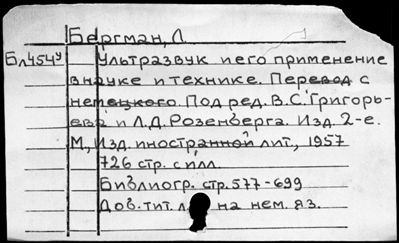 Бергман, Л.
Бл454у Ультразвук и его применение
в науке и технике. Перевод с
немецкого. Под ред. В.С. Григорь-
ева и Л.Д. Розенберга. Изд. 2-е.
М., Изд. иностранной лит., 1957
726 стр. с илл.
Библиогр. стр. 577-699
Доп. тит. л. на нем. яз.